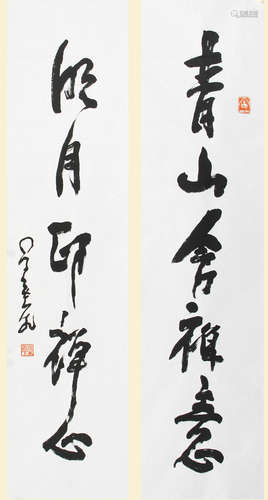 青山含禅意
明月印禅心